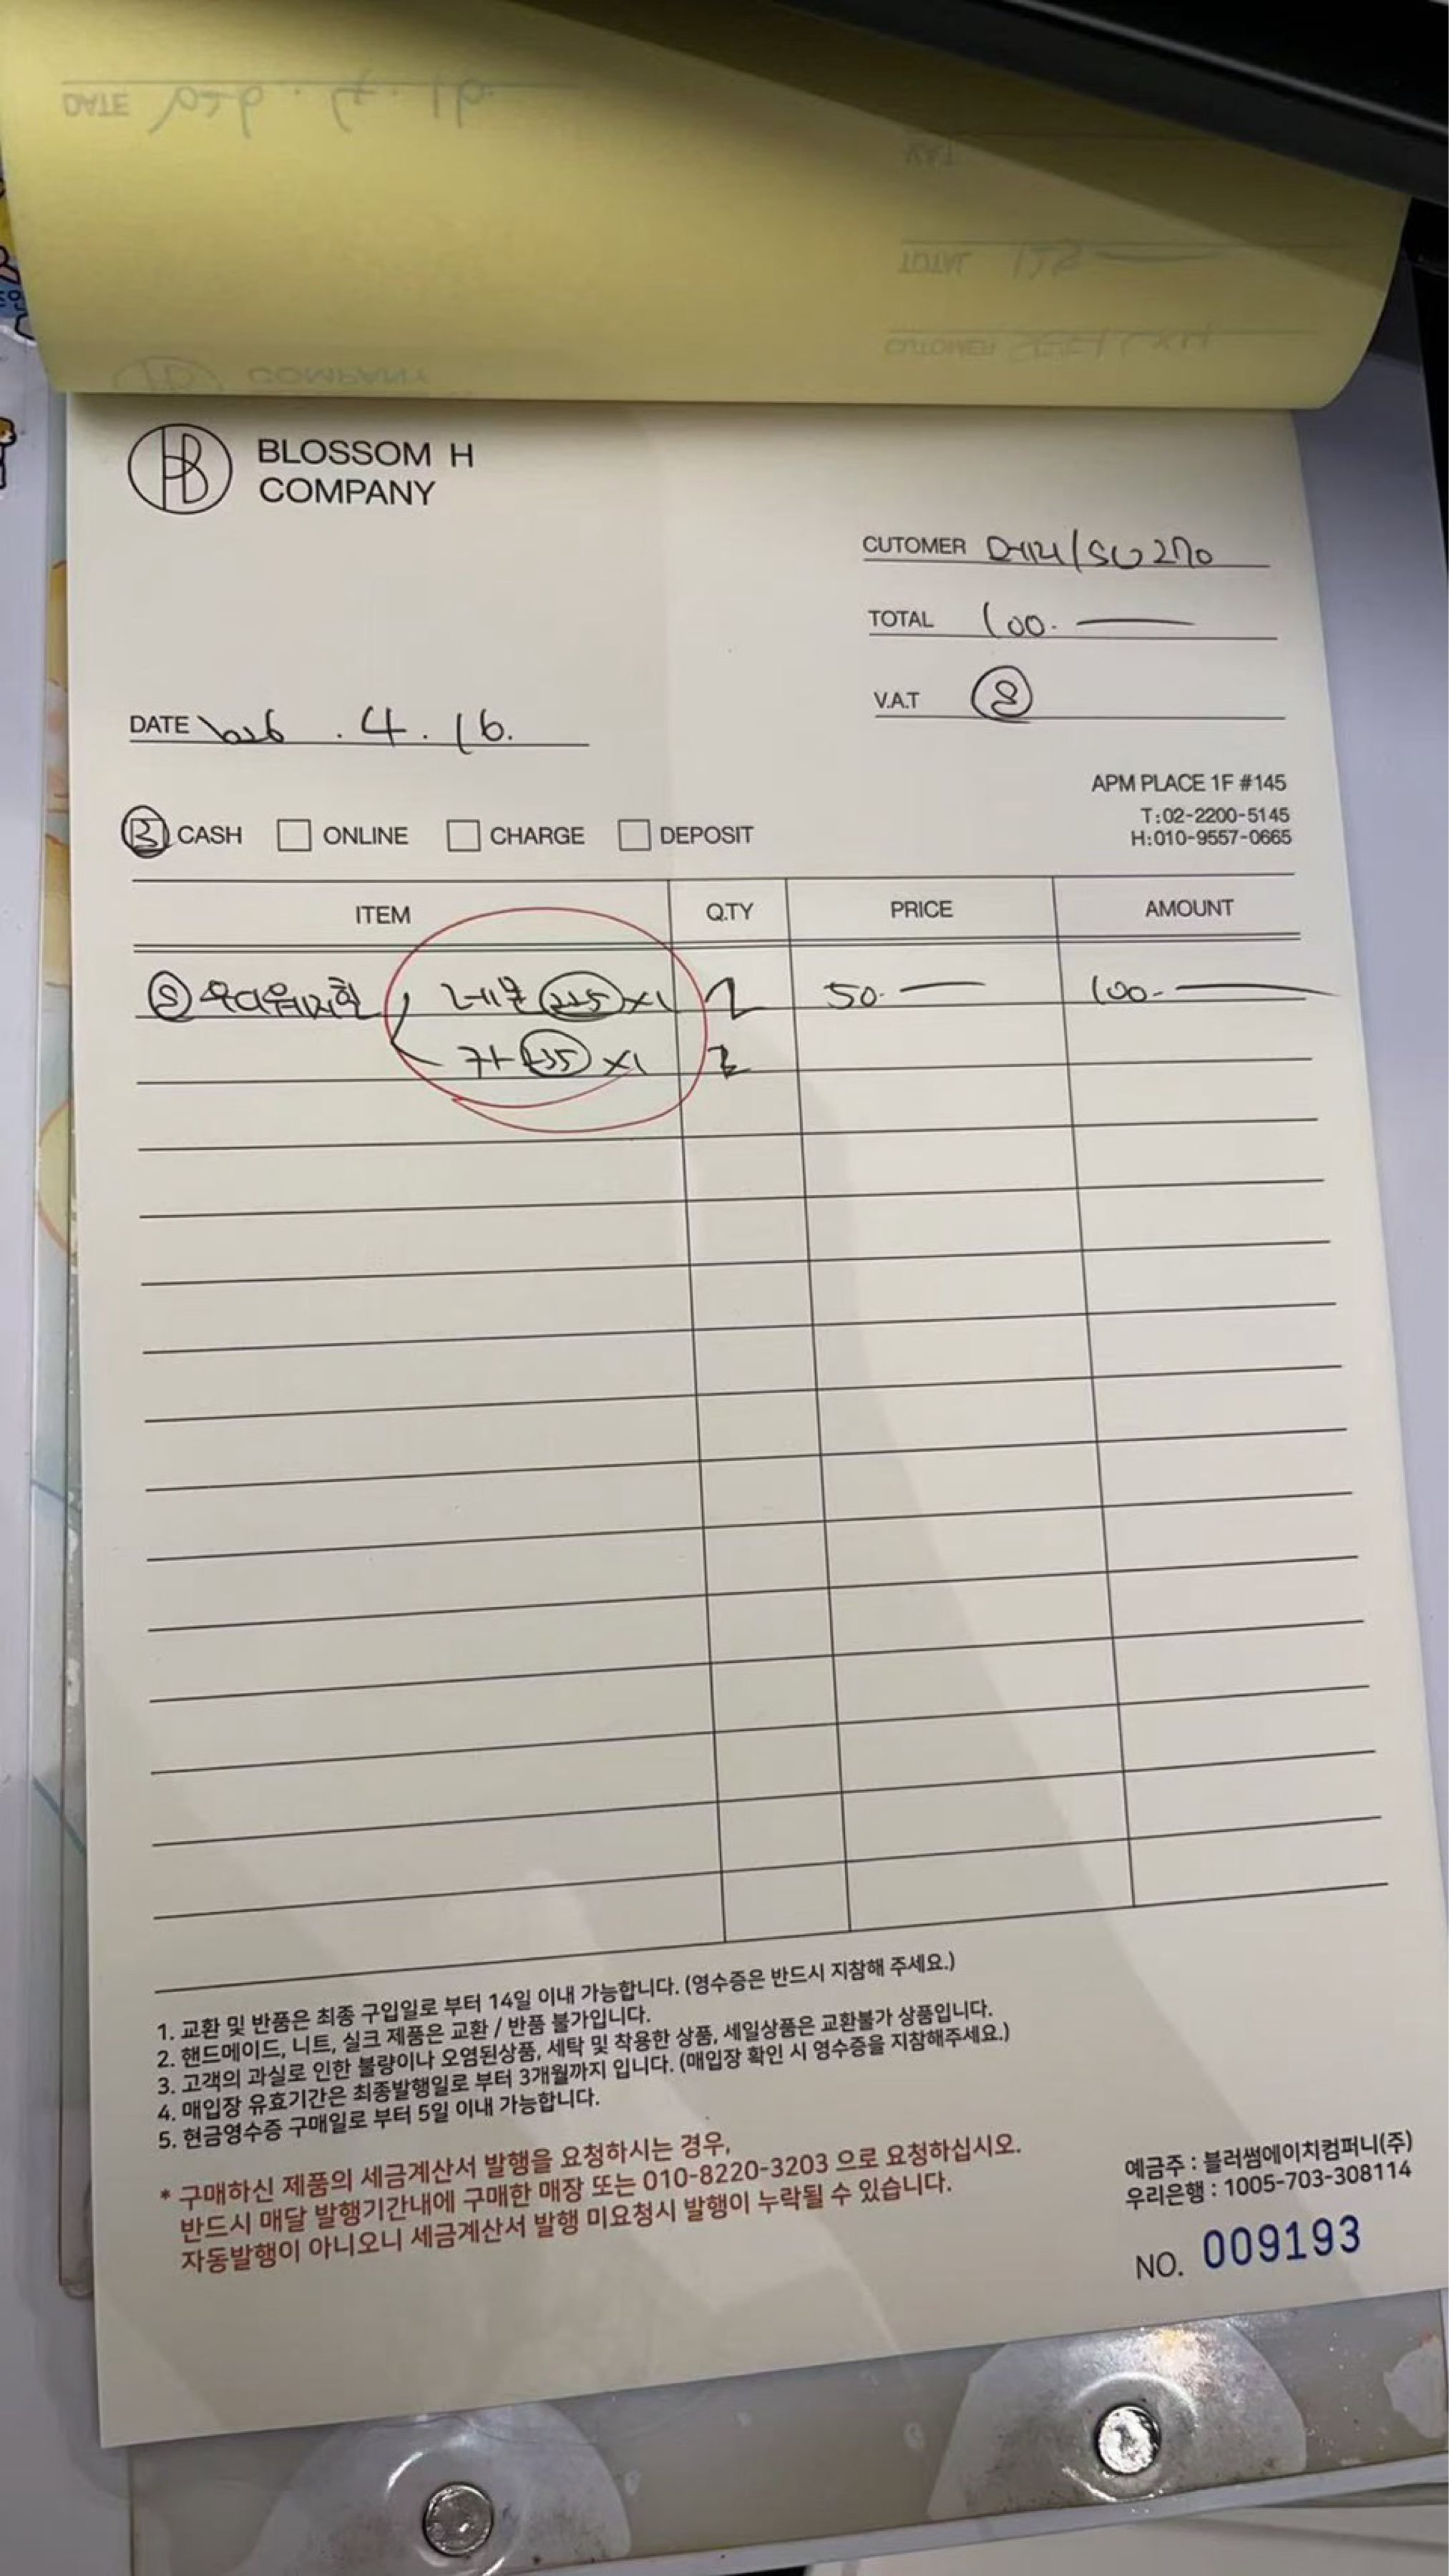 DATE
V.A.T
TOTAL
CUTOMER
COMPANY
BLOSSOM H
COMPANY
CUTOMER 데이너/SU270
TOTAL 100.
V.A.T S
DATE 2026. 4. 16.
CASH ONLINE CHARGE DEPOSIT
APM PLACE 1F #145
T:02-2200-5145
H:010-9557-0665
ITEM Q.TY PRICE AMOUNT
S 레몬 225 x1 2 50. 100.
235 x1
1. 교환 및 반품은 최종 구입일로 부터 14일 이내 가능합니다. (영수증은 반드시 지참해 주세요.)
2. 핸드메이드, 니트, 실크 제품은 교환 / 반품 불가입니다.
3. 고객의 과실로 인한 불량이나 오염된상품, 세탁 및 착용한 상품, 세일상품은 교환불가 상품입니다.
4. 매입장 유효기간은 최종발행일로 부터 3개월까지 입니다. (매입장 확인 시 영수증을 지참해주세요.)
5. 현금영수증 구매일로 부터 5일 이내 가능합니다.
* 구매하신 제품의 세금계산서 발행을 요청하시는 경우,
반드시 매달 발행기간내에 구매한 매장 또는 010-8220-3203 으로 요청하십시오.
자동발행이 아니오니 세금계산서 발행 미요청시 발행이 누락될 수 있습니다.
예금주 : 블러썸에이치컴퍼니(주)
우리은행 : 1005-703-308114
NO. 009193